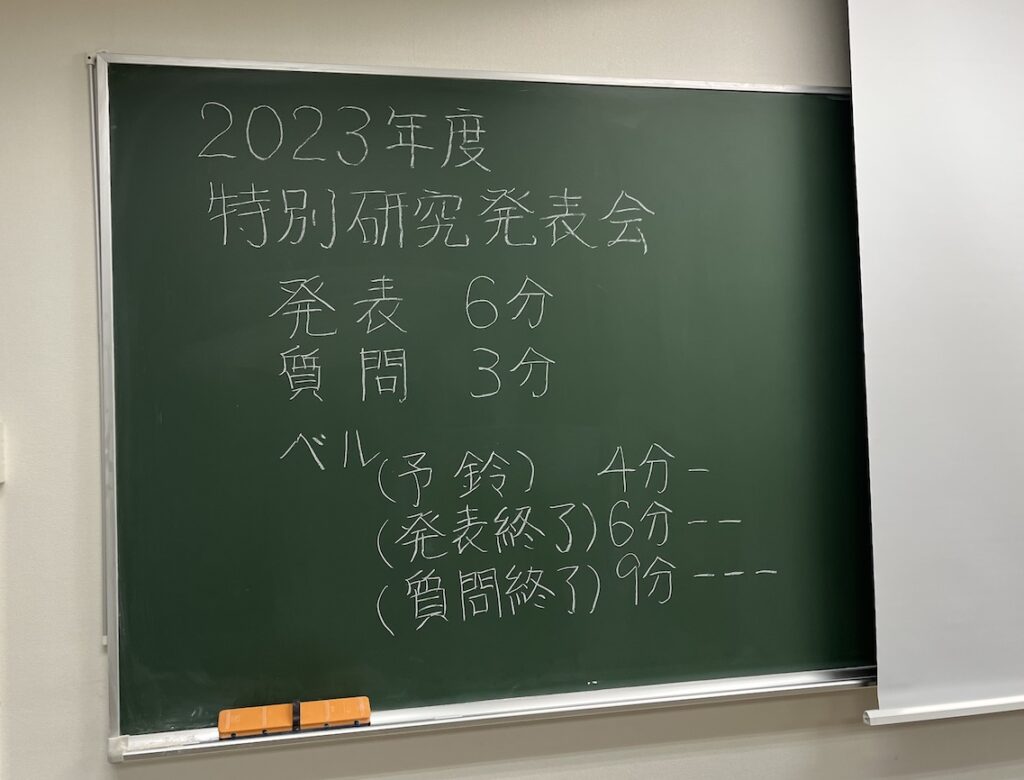 2023年度
特別研究発表会
発表 6分
質問 3分
ベル
(予鈴) 4分 -
(発表終了) 6分 --
(質問終了) 9分 ---